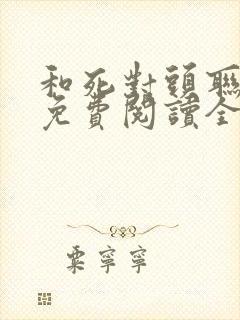 和死對頭聯
免費閱讀全
粟寧寧